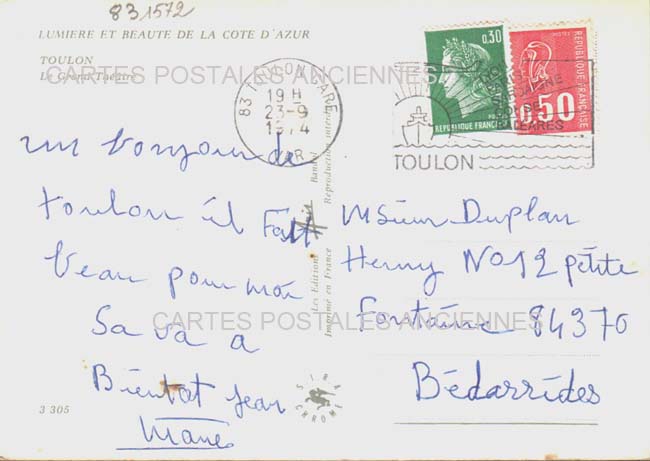 831572
LUMIERE ET BEAUTE DE LA COTE D'AZUR
TOULON
Le Grand Théâtre
CARTES POSTALES ANCIENNES
83 TOULON GARE
19 H
23-9
1974
VAR
0,30
REPUBLIQUE FRANCAISE
0,50
REPUBLIQUE FRANÇAISE
TOULON
un bonjour de
toulon il Fait
beau pour moi
Sa va a
Bientot Jean
Marie
Les Editions
Imprimé en France
Reproduction interdite
Msieur Duplan
Henry No 12 petite
Fontaine 84370
Bédarrides
CARTES POSTALES ANCIENNES
SIRA
CHROME
3 305